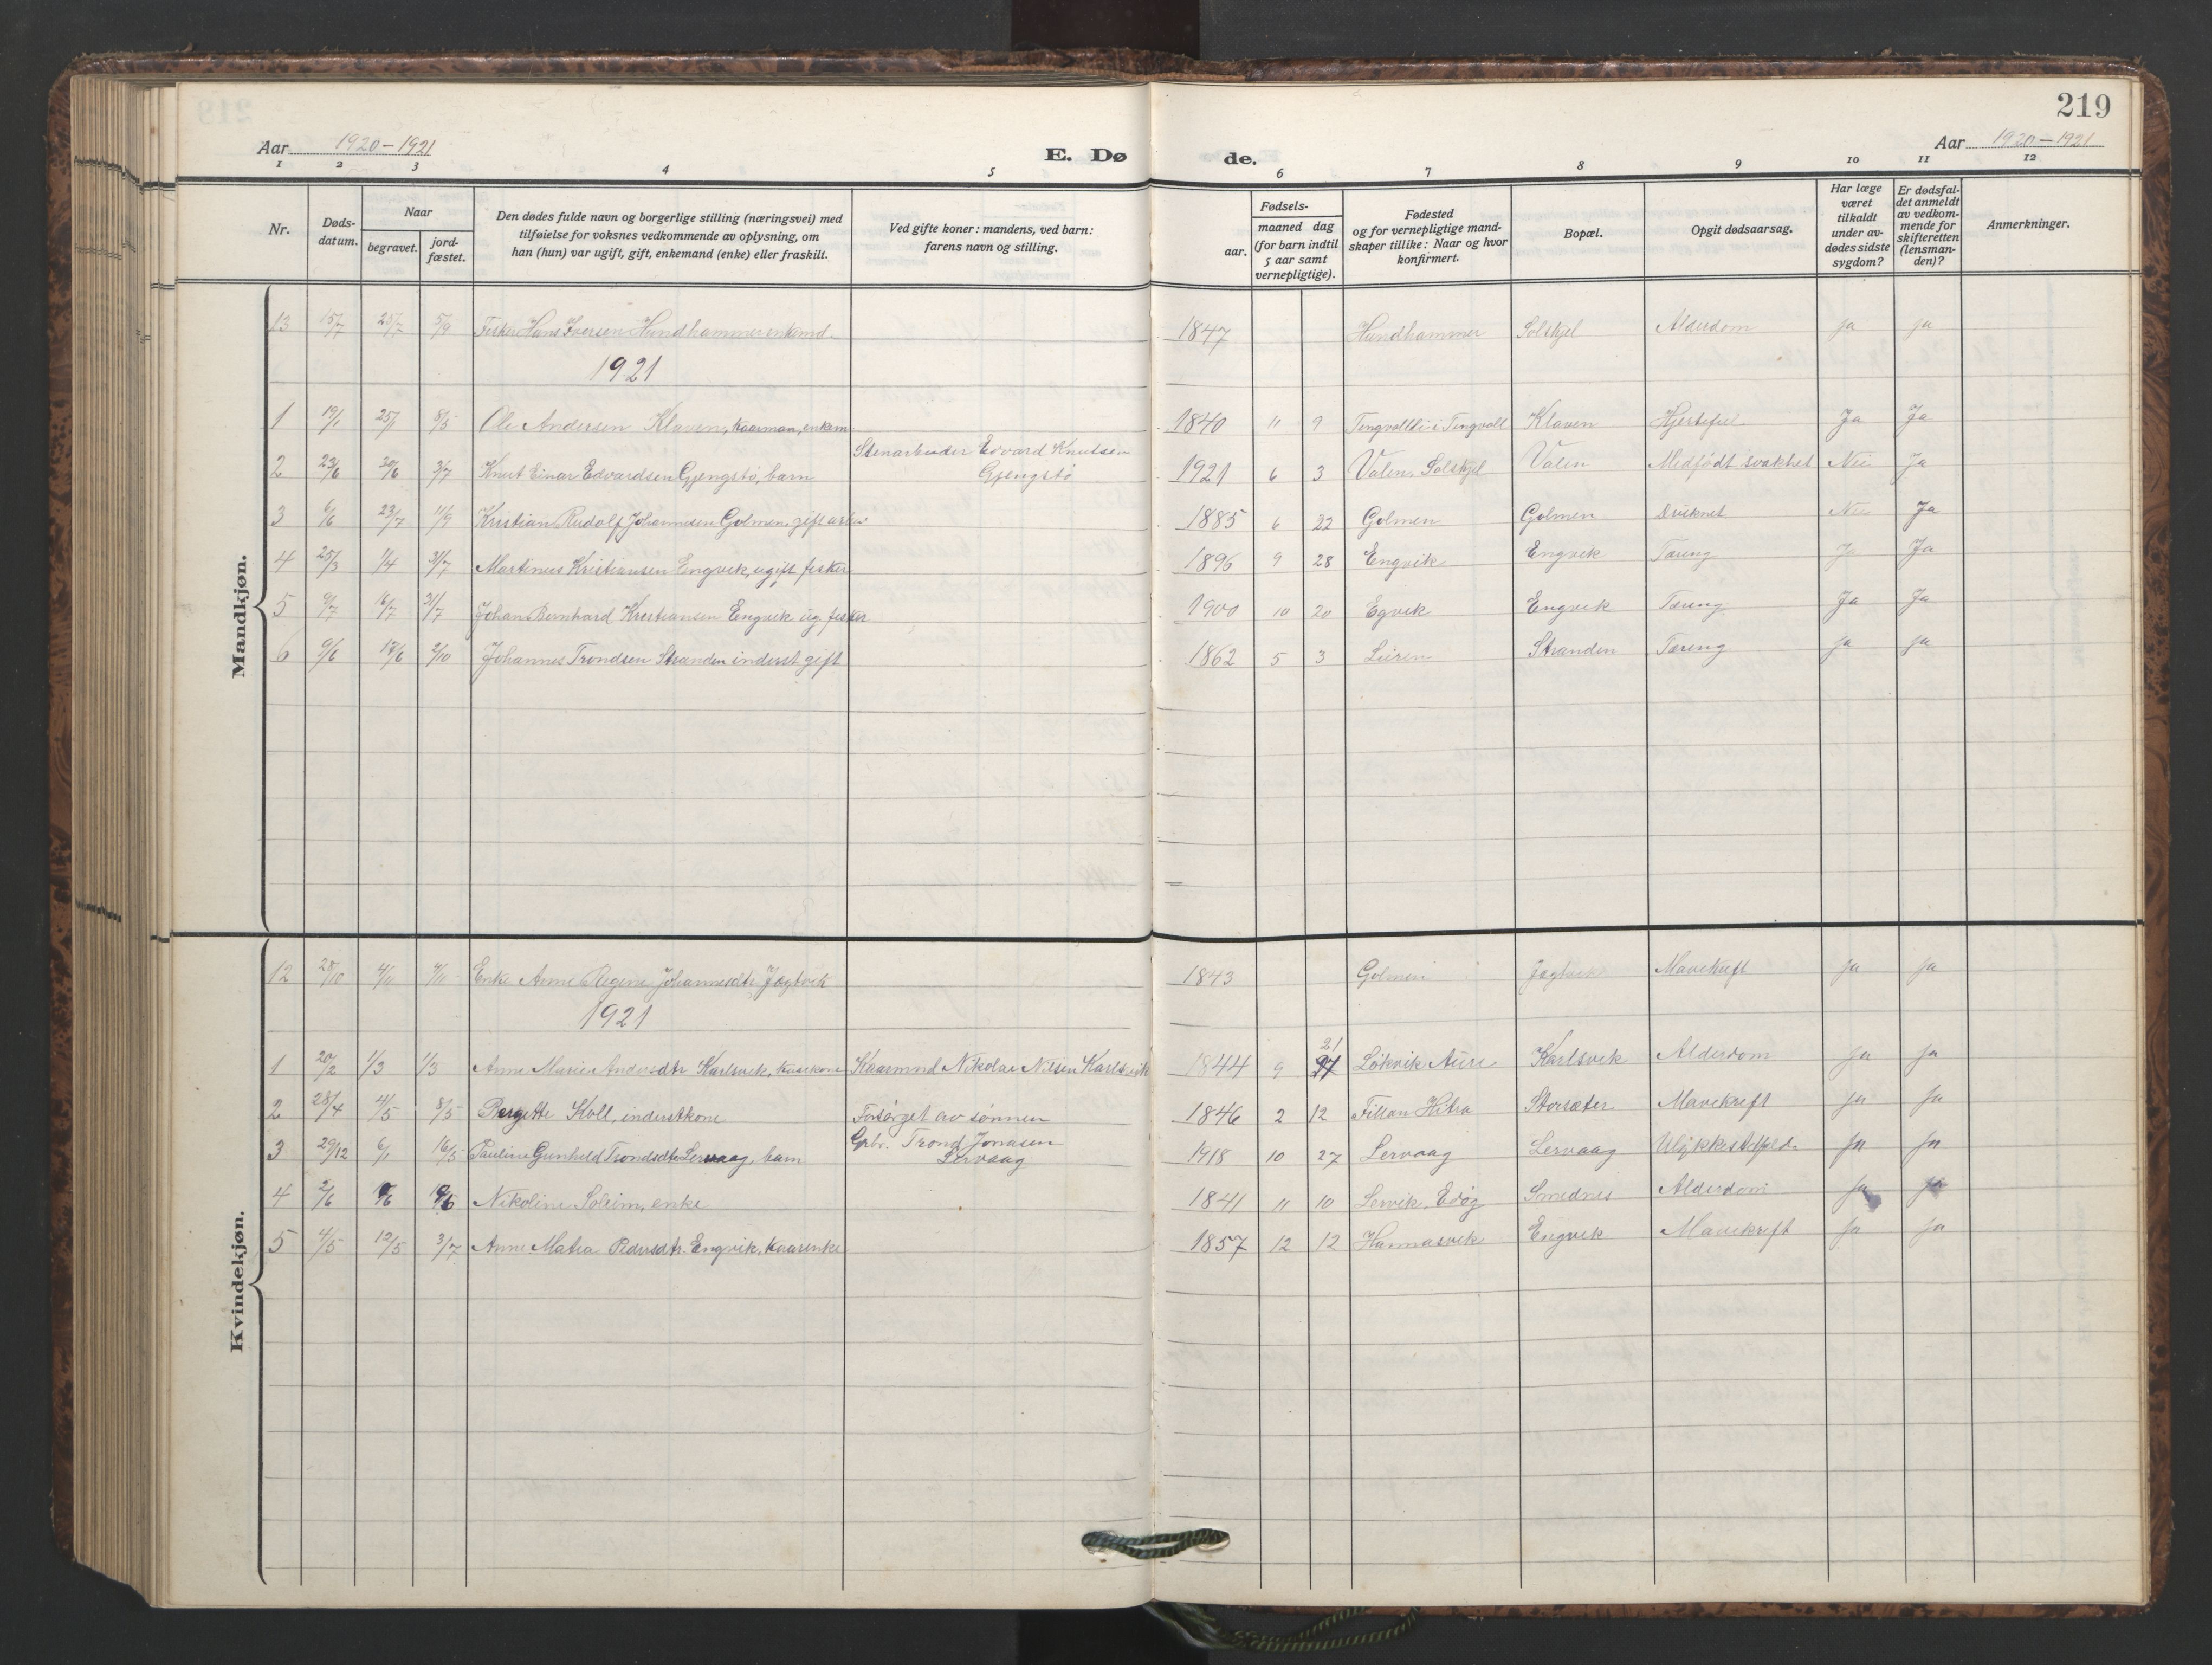 219
Aar 1920-1921
E. Døde.
Aar 1920-1921
1 2 3 4 5 6 7 8 9 10 11 12
Nr.
Døds-datum.
Naar
begravet.
jord-fæstet.
Den dødes fulde navn og borgerlige stilling (næringsvei) med
tilføielse for voksnes vedkommende av oplysning, om
han (hun) var ugift, gift, enkemand (enke) eller fraskilt.
Ved gifte koner: mandens, ved barn:
farens navn og stilling.
Fødsels-
aar.
maaned dag
(for barn indtil
5 aar samt
vernepligtige).
Fødested
og for vernepligtige mand-
skaper tillike: Naar og hvor
konfirmert.
Bopæl.
Opgit dødsaarsag.
Har læge
været
tilkaldt
under av-
dødes sidste
sygdom?
Er dødsfal-
det anmeldt
av vedkom-
mende for
skifteretten
(lensman-
den)?
Anmerkninger.
Mandkjøn.
13 15/7 25/7 5/9 Fisker Hans Iversen Hundhammer enkemd. 1847 Hundhammer Solskjel Alderdom ja ja
1921
1 19/1 25/1 8/5 Ole Andersen Klaven, kaarman, enkem 1840 11 9 Tingvollli i Tingvoll Klaven Hjertefeil Ja Ja
2 23/6 30/6 3/7 Knut Einar Edvardsen Gjengstø, barn Stenarbeider Edvard Knutsen Gjengstø 1921 6 3 Valen, Solskjel Valen Medfødt svakhet Nei Ja
3 6/6 23/7 11/9 Kristian Rudolf Johannesen Golmen, gift arbw 1885 6 22 Golmen Golmen Druknet Nei Ja
4 25/3 1/4 31/7 Martinus Kristiansen Engvik, ugift fisker 1896 9 28 Engvik Engvik Tæring Ja Ja
5 9/7 16/7 31/7 Johan Bernhard Kristiansen Engvik ug fisker 1900 10 20 Egvik Engvik Tæring Ja Ja
6 9/6 18/6 2/10 Johannes Trondsen Stranden inderst gift 1862 5 3 Leiren Stranden Tæring ja ja
Kvindekjøn.
12 28/10 4/11 4/11 Enke Anne Regine Johannesdtr Jøgtvik 1843 Golmen Jøgtvik Mavekreft ja ja
1921
1 20/2 1/3 1/3 Anne Marie Andersdtr Karlsvik, kaarkone Kaarmnd Nikolai Nilsen Karlsvik 1844 9 21 Løkvik Aure Karlsvik Alderdom ja ja
2 28/4 4/5 8/5 Bergette Koll, inderstkone Forsørget av sønnen 1846 2 12 Fillan Hitra Storsæter Mavekreft ja ja
3 29/12 6/1 16/5 Pauline Gunhild Trondsdtr Lervaag, barn Grbr. Trond Jonasen Lervaag 1918 10 27 Lervaag Lervaag Ulykkestilfeld. Ja Ja
4 2/6 Nikoline Soleim, enke 1841 11 10 Lervik, Edøy Smednes Alderdom Ja Ja
5 4/5 12/5 3/7 Anne Matea Pedersdtr. Engvik, kaarenke 1857 12 12 Hannasvik Engvik Mavekreft Ja Ja